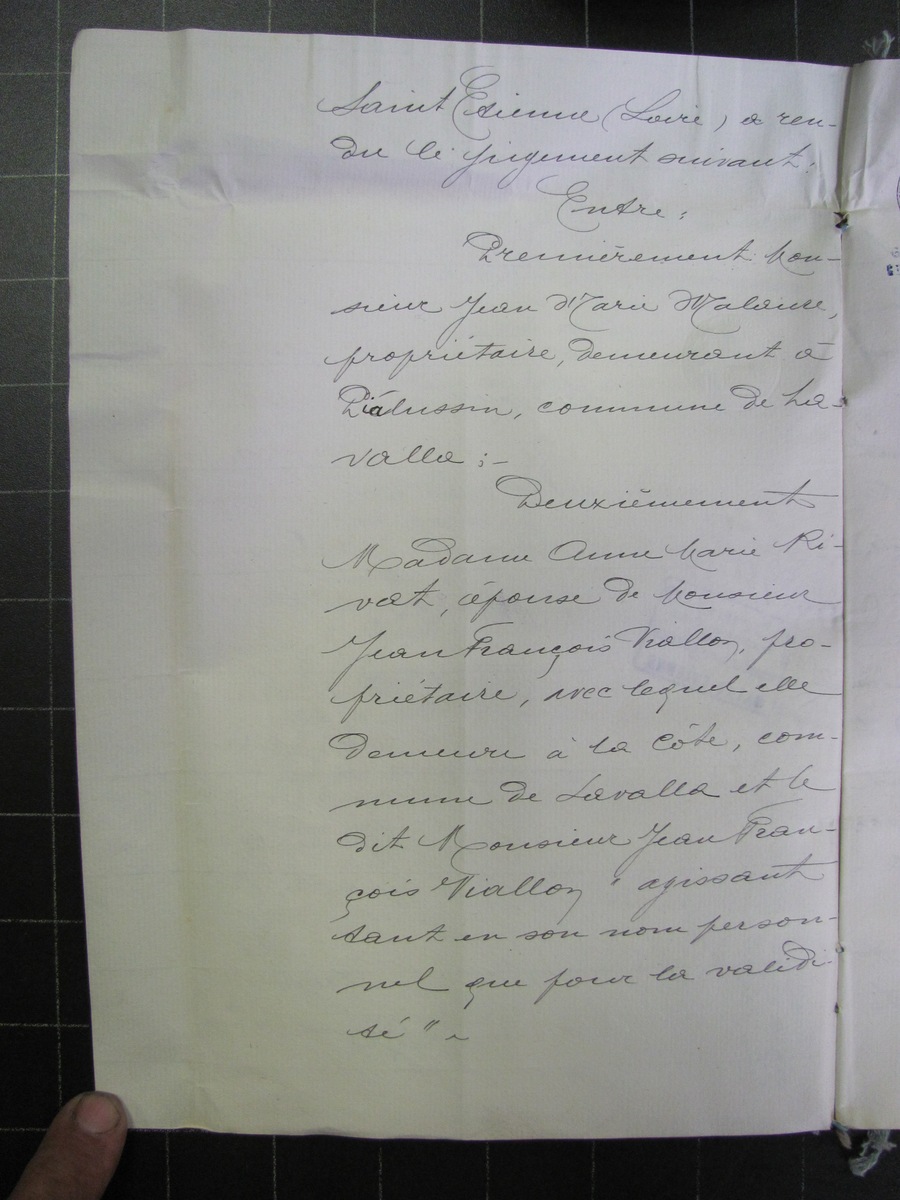 Saint Etienne (Loire) a ren-
du le jugement suivant:
Entre:
Premièrement: Mon-
sieur Jean Marie Matause,
propriétaire, demeurant à
Piálussin, commune de La-
valla ;-
Deuxièmement
Madame Anne Marie Ri-
vat, épouse de Monsieur
Jean François Viallon, pro-
priétaire, avec lequel elle
demeure à la Côte, com-
mune de Lavalla et le
dit Monsieur Jean Fran-
çois Viallon " agissant
tant en son nom person-
nel que pour la validi-
té" -